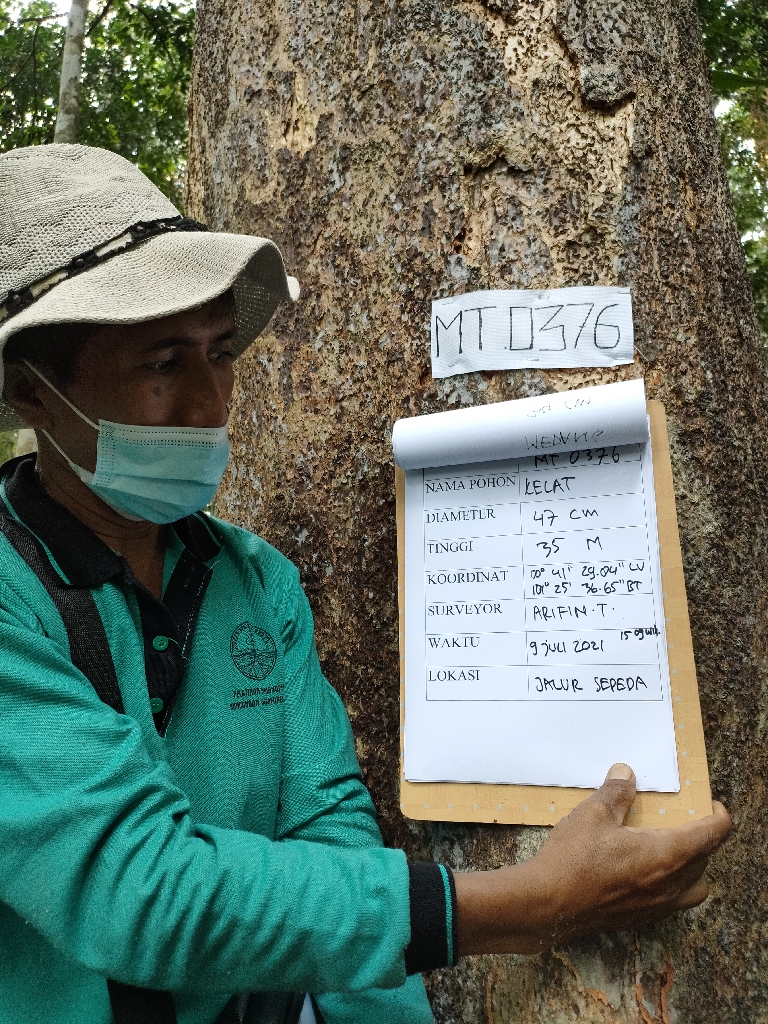 MT.0376
MT 0376
NAMA POHON KELAT
DIAMETER 47 CM
TINGGI 35 M
KOORDINAT 00° 41" 29.04" LU
101° 25' 36.65" BT
SURVEYOR ARIFIN.T.
WAKTU 9 JULI 2021 15 09 WIB
LOKASI JALUR SEPEDA